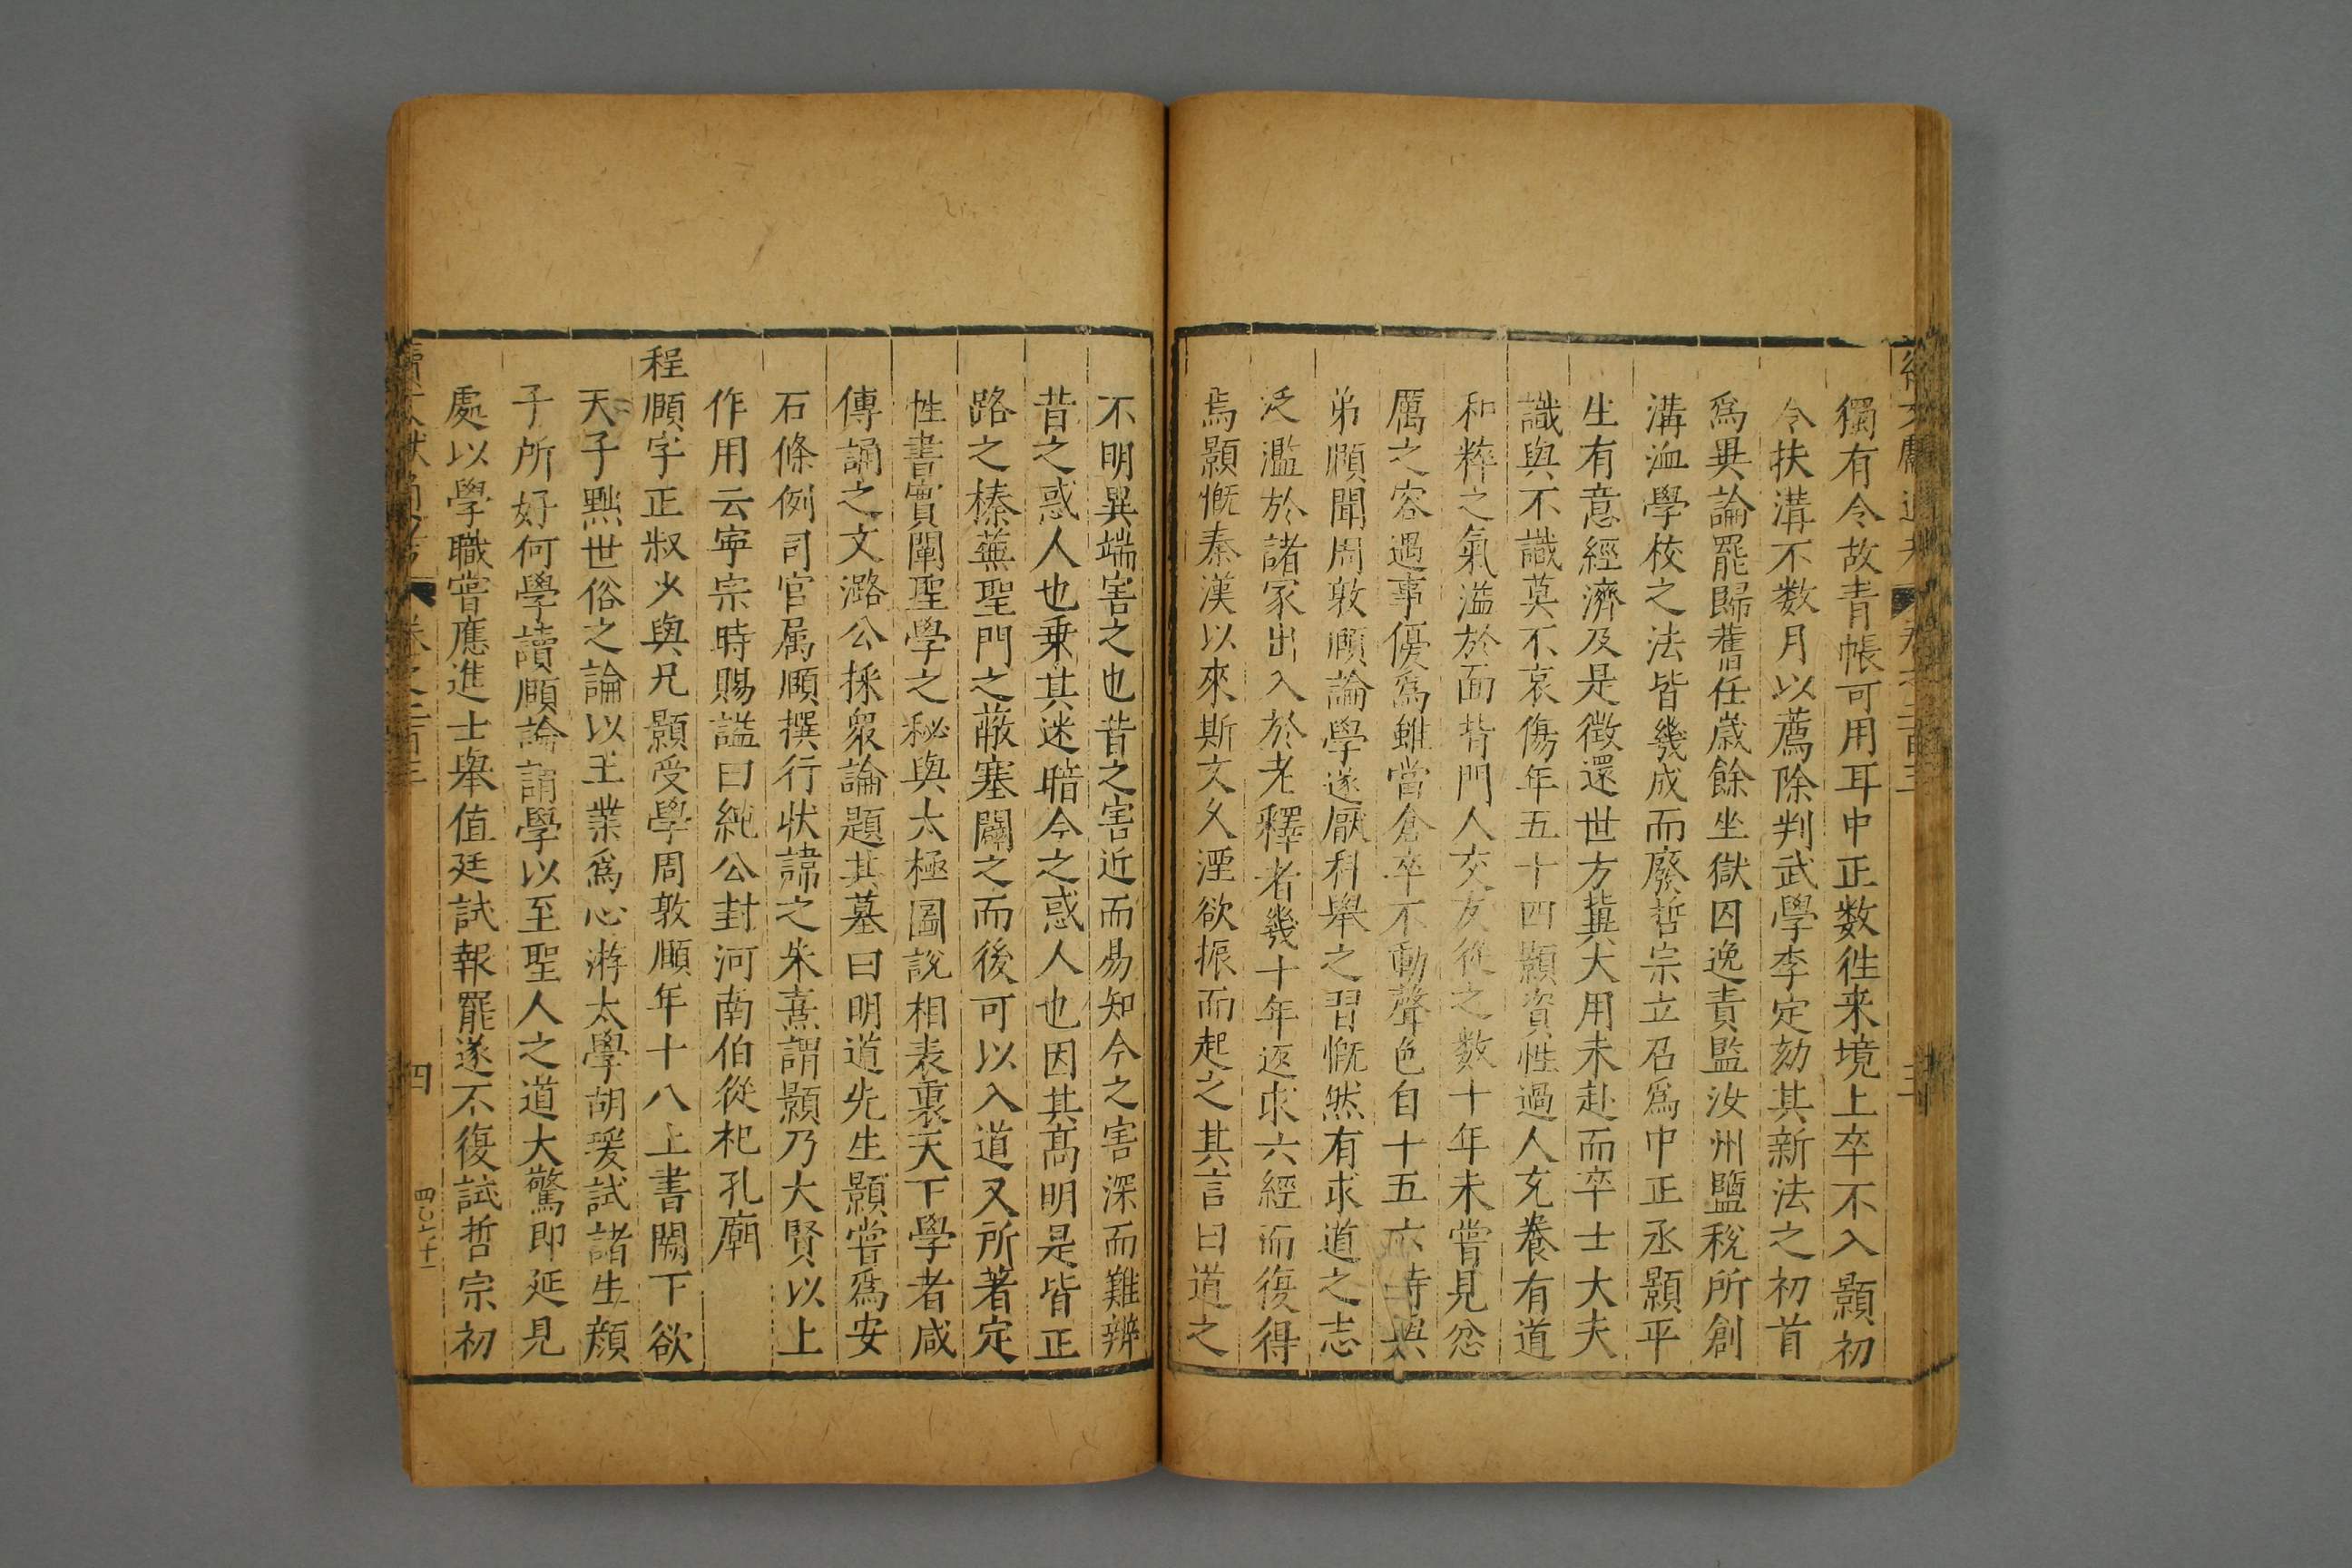 獨有令故青帳可用耳中正数徃来境上卒不入顥初
令扶溝不数月以薦除判武學李定劾其新法之初首
爲異論罷歸舊任歲餘坐獄囚逸責監汝州鹽稅所創
溝洫學校之法皆幾成而廢哲宗立召爲中正丞顥平
生有意經濟及是徵還世方冀大用未赴而卒士大夫
識與不識莫不哀傷年五十四顥資性過人充養有道
和粹之氣溢於面背門人交友從之数十年未嘗見忿
厲之容遇事優爲雖當倉卒不動聲色自十五六時與
弟頤聞周敦頤論學遂厭科舉之習慨然有求道之志
泛濫於諸家出入於老釋者幾十年返求六經而復得
焉顥慨秦漢以來斯文久湮欲振而起之其言曰道之
不明異端害之也昔之害近而易知今之害深而難辨
昔之惑人也乗其迷暗今之惑人也因其髙明是皆正
路之榛蕪聖門之蔽塞闢之而後可以入道又所著定
性書實闡聖學之秘與太極圖說相表裏天下學者咸
傳誦之文潞公採衆論題其墓曰明道先生顥嘗爲安
石條例司官属頤撰行状諱之朱熹謂顥乃大賢以上
作用云寜宗時賜謚曰純公封河南伯從祀孔廟
程頤字正叔少與兄顥受學周敦頤年十八上書闕下欲
天子黜世俗之論以王業爲心游太學胡瑗試諸生顔
子所好何學讀頤論謂學以至聖人之道大驚即延見
處以學職嘗應進士舉值廷試報罷遂不復試哲宗初
卷之二百三
四